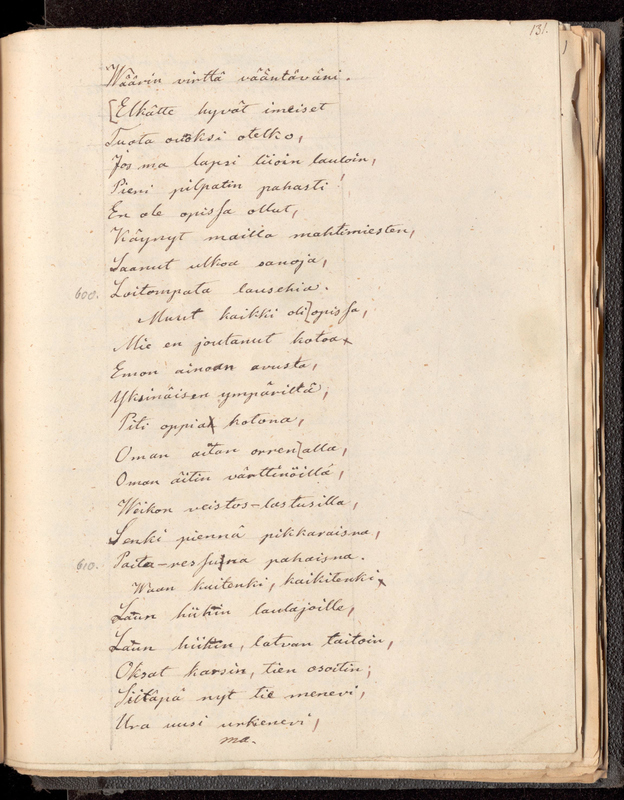 131.
Wäärin virttä vääntäväni.
[Elkätte hyvät imeiset
Tuota ouoksi otelko,
Jos ma lapsi liioin lauloin,
Pieni pilpatin pahasti!
En ole opissa ollut,
Käynyt mailla mahtimiesten,
Saanut ulkoa sanoja,
600. Loitompata lausehia.
Muut kaikki oli] opissa,
Mie en joutanut kotoa
Emon ainoan avusta,
Yksinäisen ympäriltä;
Piti oppia kotona,
Oman aitan orren] alla,
Oman äitin värttinöillä,
Weikon veistos-lastusilla,
Senki piennä pikkaraisna,
610. Paita-ressuna pahaisna.
Waan kuitenki, kaikitenki
Laun hiihin laulajoille,
Laun hiihin, latvan taitoin,
Oksat karsin, tien osoitin;
Siitäpä nyt tie menevi,
Ura uusi urkenevi,
ma.